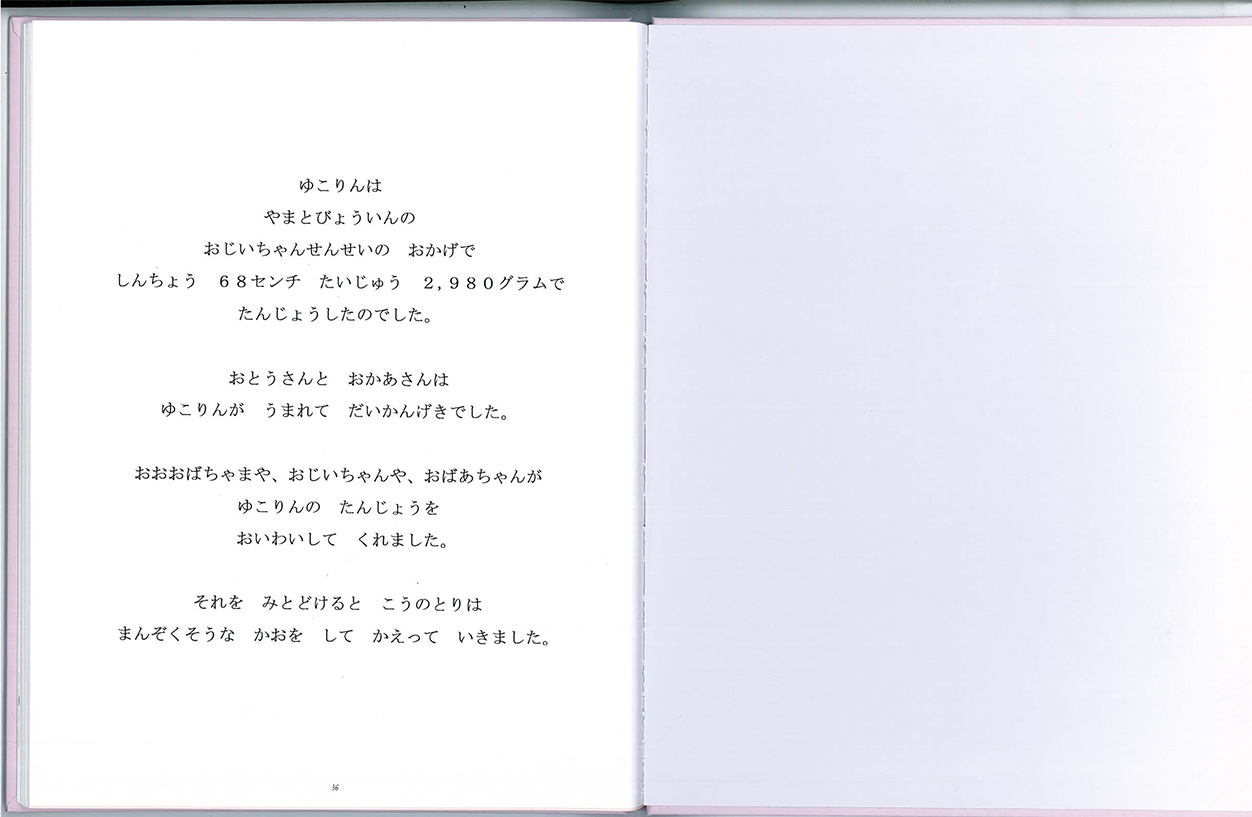 ゆこりんは
やまとびょういんの
おじいちゃんせんせいの　おかげで
しんちょう　６８センチ　たいじゅう　２,９８０グラムで
たんじょうしたのでした。
おとうさんと　おかあさんは
ゆこりんが　うまれて　だいかんげきでした。
おおおばちゃまや、おじいちゃんや、おばあちゃんが
ゆこりんの　たんじょうを
おいわいして　くれました。
それを　みとどけると　こうのとりは
まんぞくそうな　かおを　して　かえって　いきました。
36